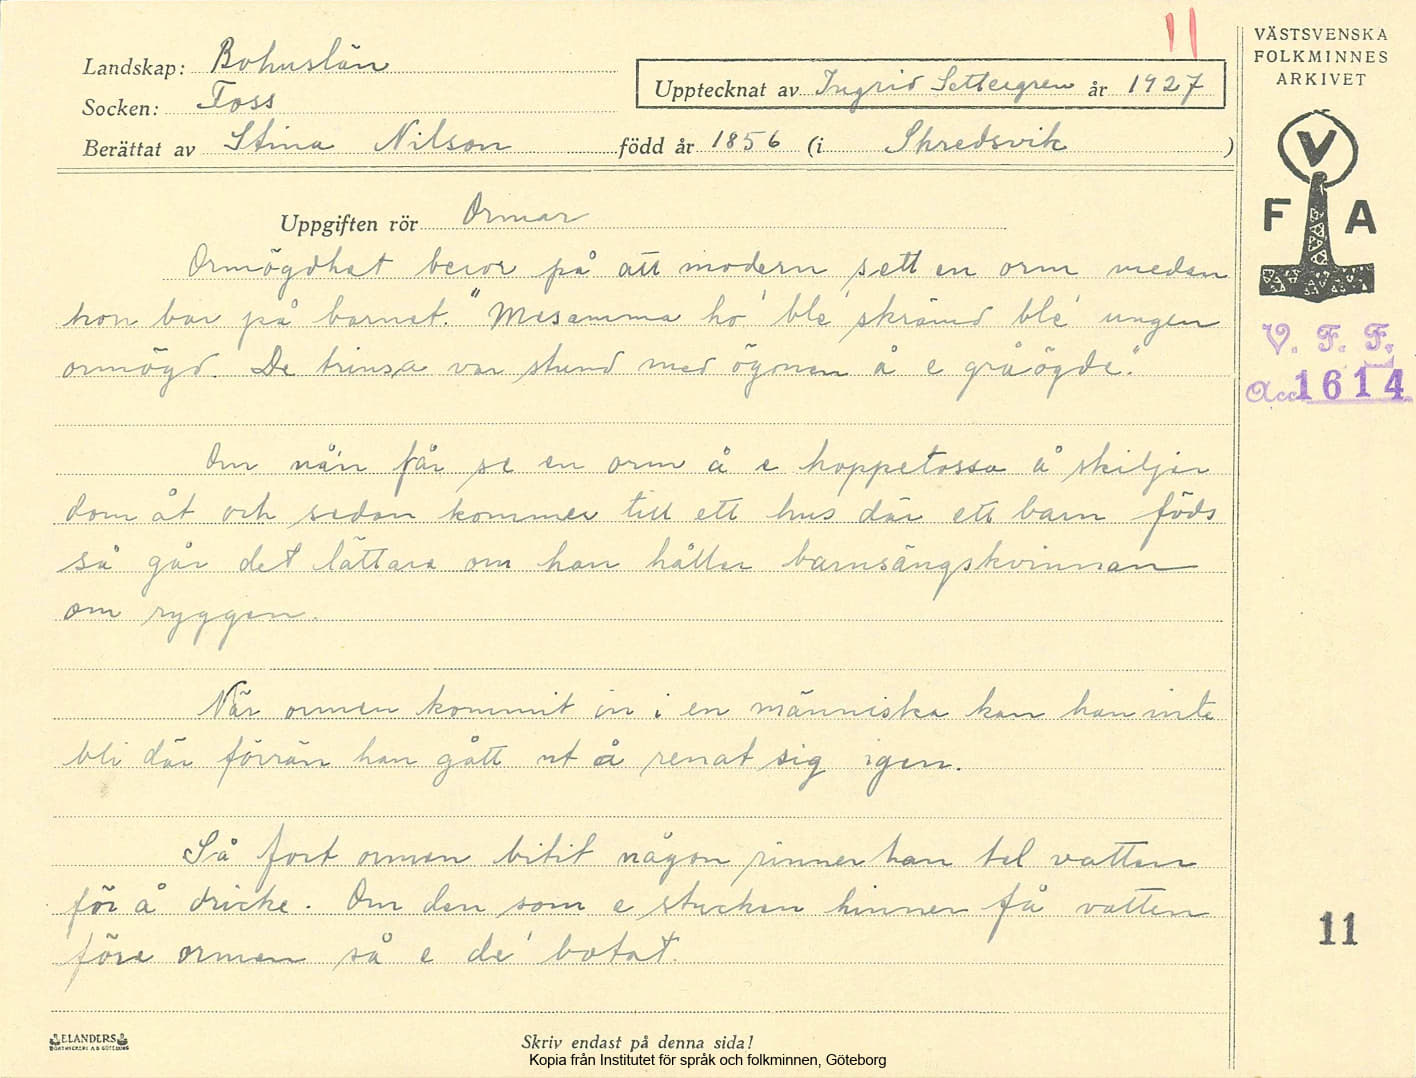 11
Landskap: Bohuslän
Socken: Foss
Upptecknat av Ingrid Settergren år 1927
Berättat av Stina Nilson född år 1856 (i Skredsvik )
VÄSTSVENSKA
FOLKMINNES
ARKIVET
V
F A
V. F. F.
Acc 1614
Uppgiften rör Ormar
Ormögdhet beror på att modern sett en orm medan
hon bar på barnet. "Mesamma ho' ble' skrämd ble' ungen
ormögd. De trinsa var stund med ögonen å e gråögde."
Om nå'n får se en orm å e hoppetossa å skiljer
dom åt och sedan kommer till ett hus där ett barn föds
så går det lättare om han håller barnsängskvinnan
om ryggen.
När ormen kommit in i en människa kan han inte
bli där förrän han gått ut å renat sig igen.
Så fort ormen bitit någon rinner han tel vatten
för å dricke. Om den som e stucken hinner få vatten
före ormen så e de' botat.
11
ELANDERS
BOKTRYCKERI A.B. GÖTEBORG
Skriv endast på denna sida!
Kopia från Institutet för språk och folkminnen, Göteborg